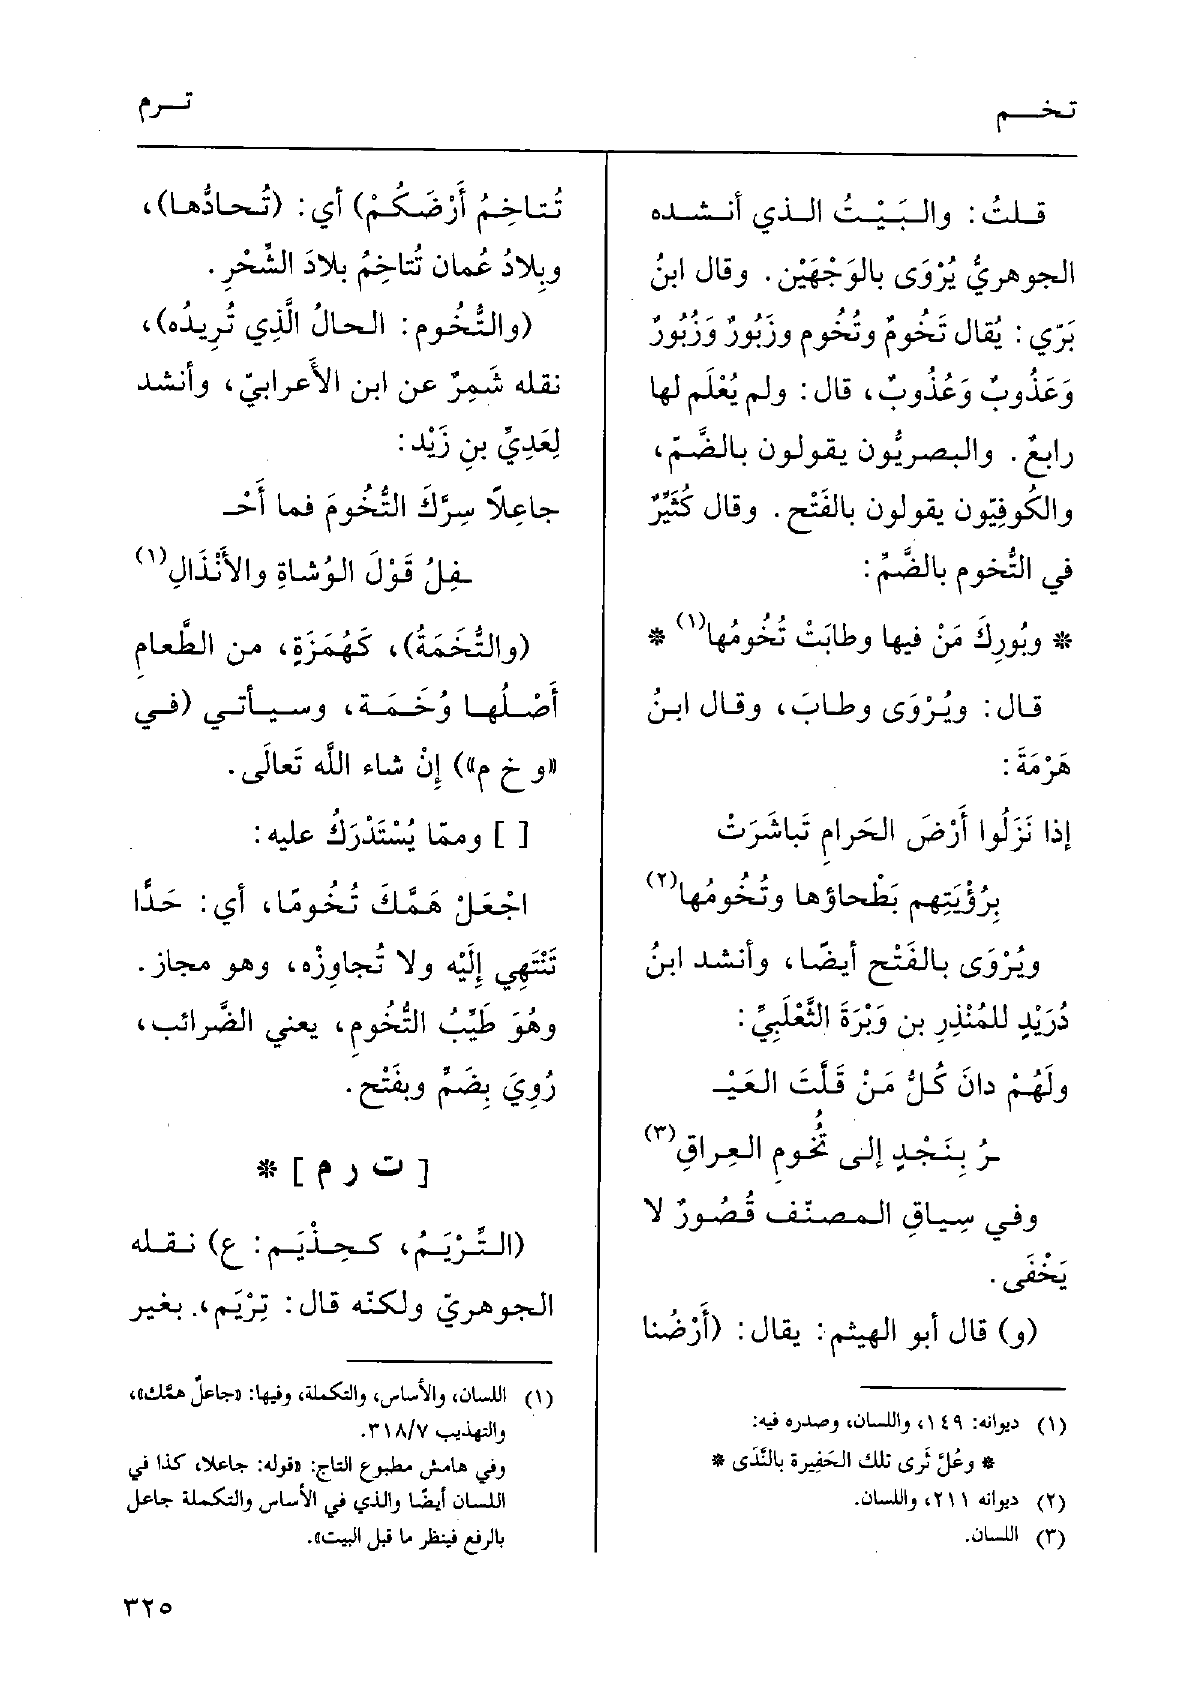 تخـــم
تــرم
قـلـتُ: والـبَـيْـتُ الـذي أنـشـده
الجوهريُّ يُرْوَى بالوَجْهَيْن. وقال ابنُ
بَرّي: يُقال تَخُومٌ وتُخُوم وزَبُورٌ وَزُبُورٌ
وَعَذُوبٌ وَعُذُوبٌ، قال: ولم يُعْلَم لها
رابعٌ. والبصريُّون يقولون بالضَّمّ،
والكُوفِيّون يقولون بالفَتْح. وقال كُثَيِّرٌ
في التُّخوم بالضَّمِّ:
* وبُورِكَ مَنْ فيها وطابَتْ تُخُومُها(١) *
قـال: ويُـرْوَى وطـابَ، وقـال ابـنُ
هَرْمَةَ:
إذا نَزَلُوا أَرْضَ الحَرامِ تَباشَرَتْ
بِرُؤْيَتِهم بَطْحاؤها وتُخُومُها(٢)
ويُرْوَى بالفَتْح أيضًا، وأنشد ابنُ
دُرَيْدٍ للمُنْذِرِ بن وَبْرَةَ الثَّعْلَبِيِّ:
ولَهُمْ دانَ كُلُّ مَنْ قَلَّتَ العَيْـ
ـرُ بِنَجْدٍ إلى تُخُومِ العِراقِ(٣)
وفي سِياقِ المصنّف قُصُورٌ لا
يَخْفَى.
(و) قال أبو الهيثم: يقال: (أَرْضُنا
(١) ديوانه: ١٤٩، واللسان، وصدره فيه:
* وعُلَّ ثَرى تلك الحَفيرة بالنَّدَى *
(٢) ديوانه ٢١١، واللسان.
(٣) اللسان.
تُتاخِمُ أَرْضَكُمْ) أي: (تُحادُّها)،
وبِلادُ عُمان تُتاخِمُ بلادَ الشِّحْرِ.
(والتُّخُوم: الحالُ الَّذِي تُرِيدُه)،
نقله شَمِرٌ عن ابن الأَعرابيّ، وأنشد
لِعَدِيِّ بنِ زَيْد:
جاعِلاً سِرَّكَ التُّخُومَ فما أَحْـ
ـفِلُ قَوْلَ الوُشاةِ والأَنْذَالِ(١)
(والتُّخَمَةُ)، كَهُمَزَةٍ، من الطَّعامِ
أَصْـلُـهـا وُخَـمَـة، وسـيـأتـي (فـي
«و خ م») إنْ شاء اللّه تَعالَى.
[ ] وممّا يُسْتَدْرَكُ عليه:
اجْعَلْ هَمَّكَ تُخُومًا، أي: حَدًّا
تَنْتَهِي إلَيْه ولا تُجاوِزْه، وهو مجاز.
وهُوَ طَيِّبُ التُّخُومِ، يعني الضَّرائب،
رُوِيَ بِضَمٍّ وبفَتْح.
[ ت ر م ] *
(الـتِّـرْيَـمُ، كـحِـذْيَـم: ع) نـقـلـه
الجوهريّ ولكنّه قال: تِرْيَم، بغير
(١) اللسان، والأساس، والتكملة، وفيها: «جاعلٌ همَّك»،
والتهذيب ٣١٨/٧.
وفي هامش مطبوع التاج: «قوله: جاعلا، كذا في
اللسان أيضًا والذي في الأساس والتكملة جاعل
بالرفع فينظر ما قبل البيت».
٣٢٥